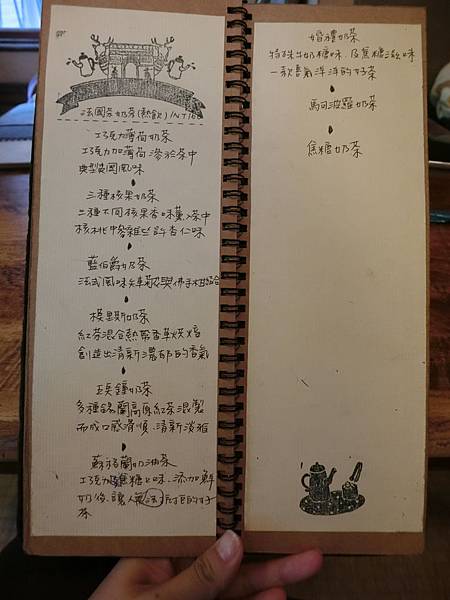 法國茶奶茶(熱飲)/NT
巧克力薄荷奶茶
巧克力加薄荷 溶於茶中
典型英國風味
三種核果奶茶
三種不同核果香味薰入茶中
核桃中參雜些許杏仁味
藍伯爵奶茶
法式風味矢車菊與佛手柑結合
模里斯奶茶
紅茶混合熱帶香草烘焙
創造出清新濃郁的香氣
玉與鐘奶茶
多種錫蘭高原紅茶混製
而成口感滑順、清新淡雅
蘇格蘭奶油茶
巧克力焦糖火味、添加鮮
奶後、讓人
茶
婚禮奶茶
特殊牛奶糖味、及焦糖澈味
一款喜氣洋洋的好茶
馬可波羅奶茶
焦糖奶茶